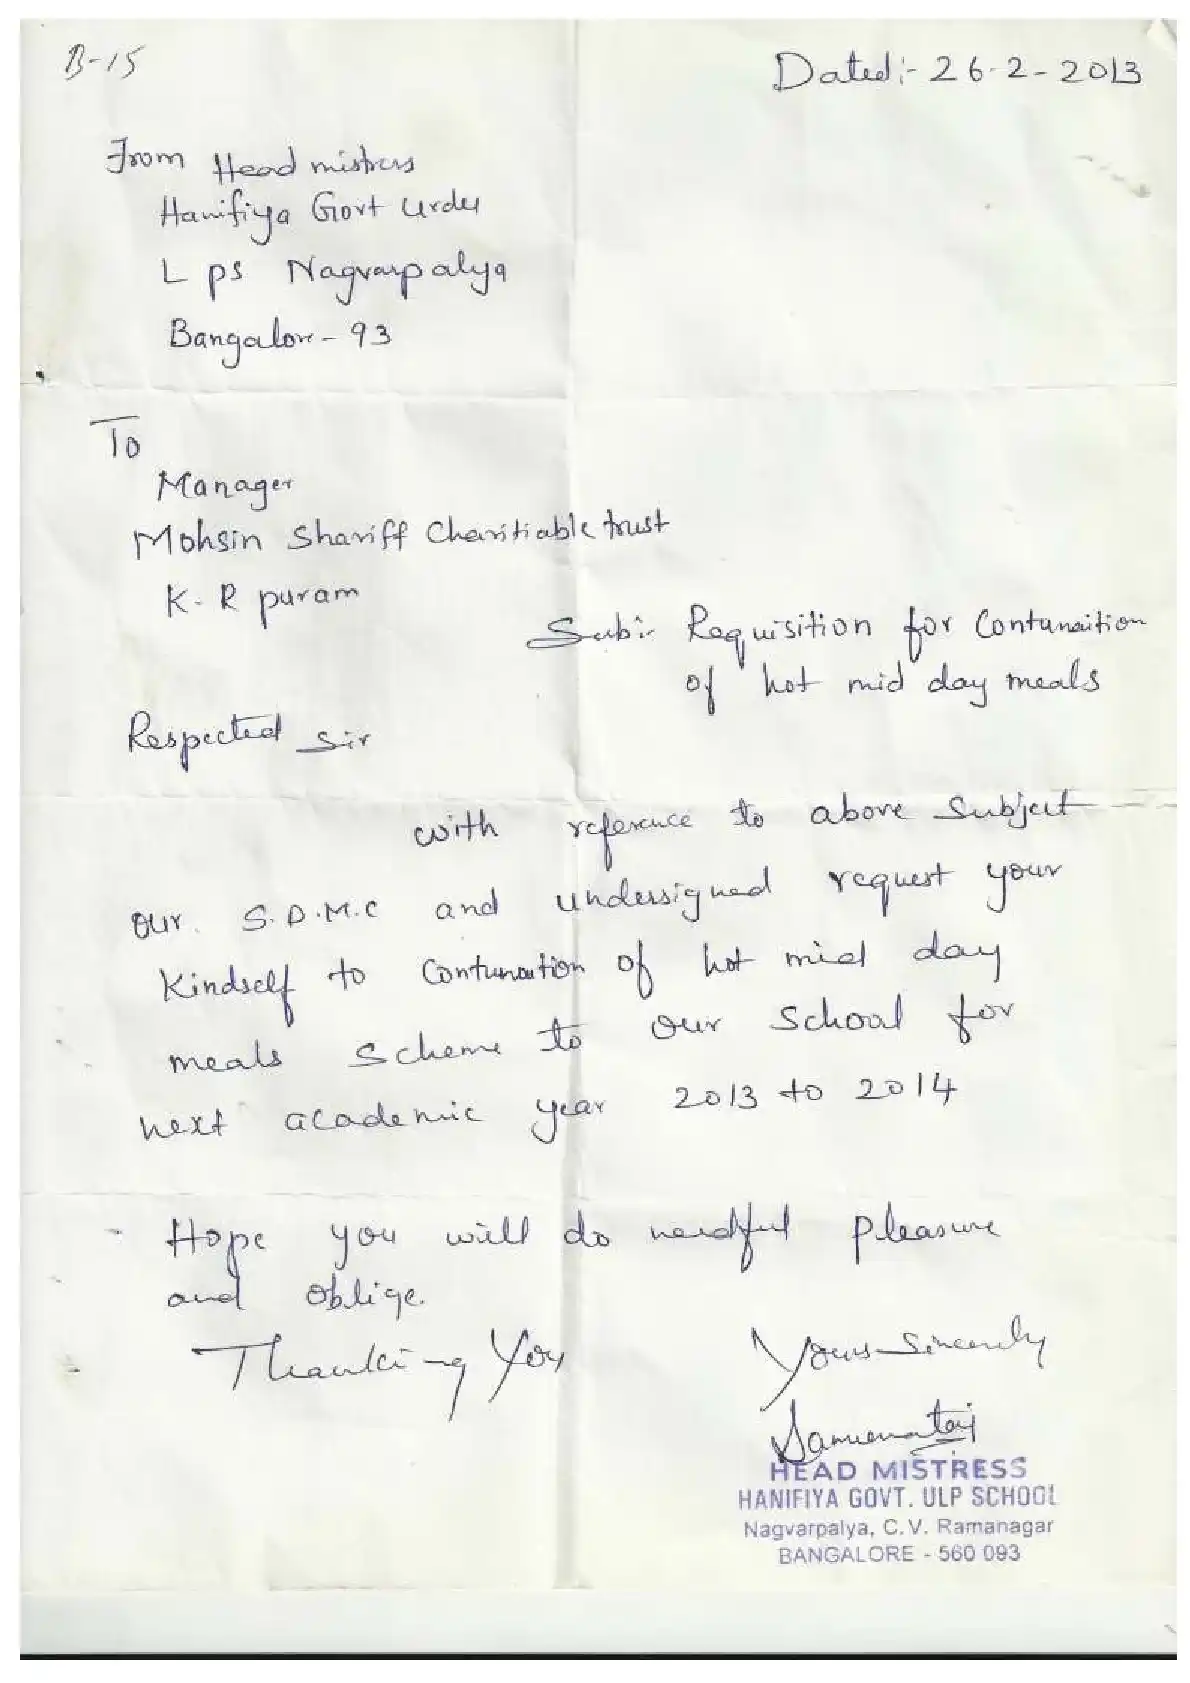 B-15
Dated:- 26-2-2013
From Head mistress
Hanifiya Govt Urdu
L ps Nagvarpalya
Bangalore - 93
To
Manager
Mohsin Shariff Charitiable trust
K. R puram
Sub:- Requisition for Contunaition
of hot mid day meals
Respected Sir
with reference to above Subject
our S.D.M.C and undersigned request your
Kindself to Contunation of hot mid day
meals Scheme to our School for
next academic year 2013 to 2014
Hope you will do needful pleasure
and oblige.
Thanking You
Yours Sincerely
HEAD MISTRESS
HANIFIYA GOVT. ULP SCHOOL
Nagvarpalya, C.V. Ramanagar
BANGALORE - 560 093